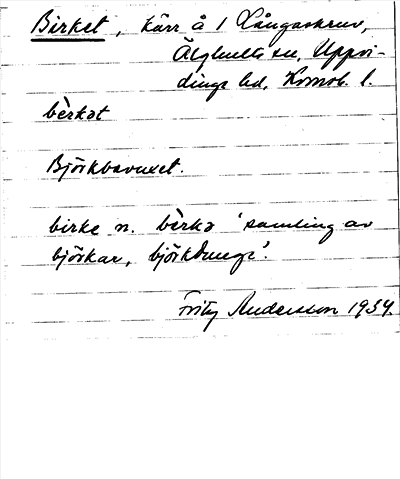 Birket, kärr å 1 Långaskruv,
Älghults sn, Uppvi-
dinge hd, Kronob. l.
bèrkət
Björkbevuxet.
birke n. bèrkə 'samling av
björkar, björkdunge'.
Fritz Andersson 1934.